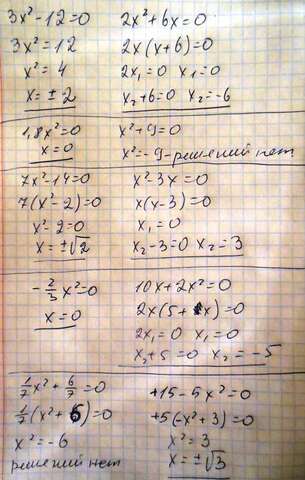 3x²-12=0
3x²=12
x²=4
x=±2
2x²+6x=0
2x(x+6)=0
2x₁=0 x₁=0
x₂+6=0 x₂=-6
1,8x²=0
x=0
x²+9=0
x²=-9-решений нет
7x²-14=0
7(x²-2)=0
x²-2=0
x=±√2
x²-3x=0
x(x-3)=0
x₁=0
x₂-3=0 x₂=3
-2/3x²=0
x=0
10x+2x²=0
2x(5+x)=0
2x₁=0 x₁=0
x₂+5=0 x₂=-5
1/7x²+6/7=0
1/7(x²+6)=0
x²=-6
решений нет
+15-5x²=0
+5(-x²+3)=0
x²=3
x=±√3